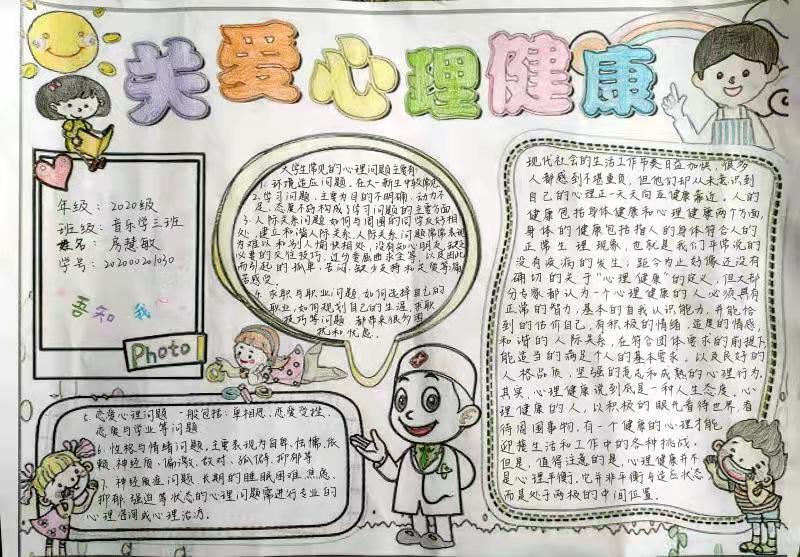 关爱心理健康
年级：2020级
班级：音乐学三班
姓名：房慧敏
学号：20200201030
Photo
大学生常见的心理问题主要有：
1.环境适应问题，在大一新生中较常见
2.学习问题，主要为目的不明确，动力不
足、态度不好构成了学习问题的主要方面
3.人际关系问题 如何与周围的同学友好相
处，建立和谐人际关系，人际关系问题常常表现
为难以和别人愉快相处，没有知心朋友，缺乏
必要的交往技巧，过分委曲求全等，以及因此
而引起的孤单、苦闷、缺少支持和关爱等痛
苦感受。
4.求职与职业问题，如何选择自己的
职业，如何规划自己的生涯，求职
技巧等问题 都带来很多困
扰和忧虑。
5.恋爱心理问题 一般包括：单相思、恋爱受挫、
恋爱与学业等问题
6.性格与情绪问题，主要表现为自卑、怯懦、依
赖、神经质、偏激、敌对、孤僻、抑郁等
7.神经质症问题 长期的睡眠困难、焦虑、
抑郁、强迫等状态的心理问题需进行专业的
心理咨询或心理治疗。
现代社会的生活工作节奏日益加快，很多
人都感到不堪重负，但他们却从未意识到
自己的心理正一天天向亚健康靠近。人的
健康包括身体健康和心理健康两个方面，
身体的健康包括指人的身体符合人的
正常生理现象，也就是我们平常说的
没有疾病的发生；距今为止好像还没有
确切的关于“心理健康”的定义，但大部
分专家都认为一个心理健康的人必须具有
正常的智力，基本的自我认识能力，并能恰
到的估价自己，有积极的情绪，适度的情感，
和谐的人际关系，在符合团体要求的前提下
能适当的满足个人的基本要求，以及良好的
人格品质，坚强的意志和成熟的心理行为。
其实，心理健康说到底是一种人生态度。心
理健康的人，以积极的眼光看待世界，看
待周围事物，有一个健康的心理才能
迎接生活和工作中的各种挑战。
但是，值得注意的是，心理健康并不
是心理平衡，它并非平衡与适应状态
而是处于两极的中间位置。